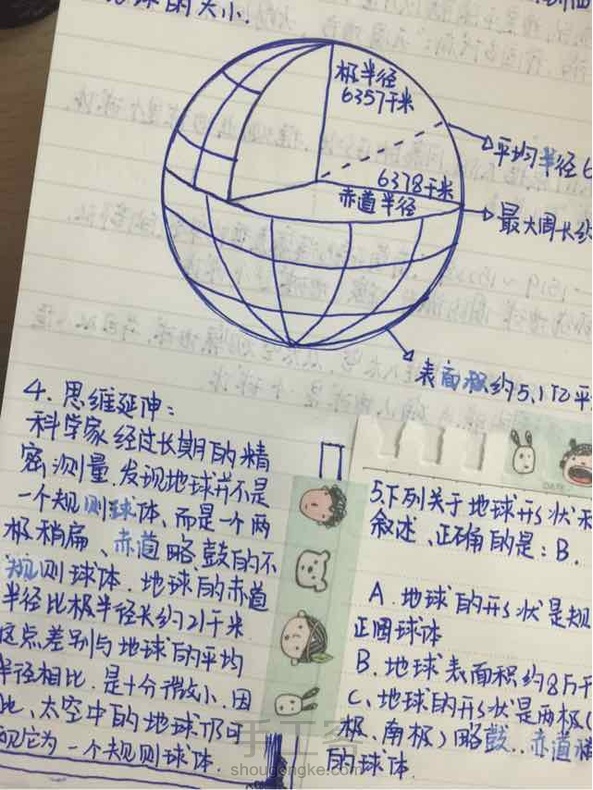 球的大小.
极半径
6357千米
平均半径6
6378千米
赤道半径
最大周长约
表面积约5.1亿平
4. 思维延伸:
科学家经过长期的精
密测量,发现地球并不是
一个规则球体、而是一个两
极稍扁、赤道略鼓的不
规则球体.地球的赤道
半径比极半径长约21千米.
这点差别与地球的平均
半径相比.是十分微小.因
此、太空中的地球仍可
视它为一个规则球体.
5.下列关于地球形状和
叙述、正确的是:B.
A.地球的形状是规
正圆球体
B.地球表面积约8万平
C、地球的形状是两极(
极、南极)略鼓..赤道
的球体.
手工客
shougongke.com